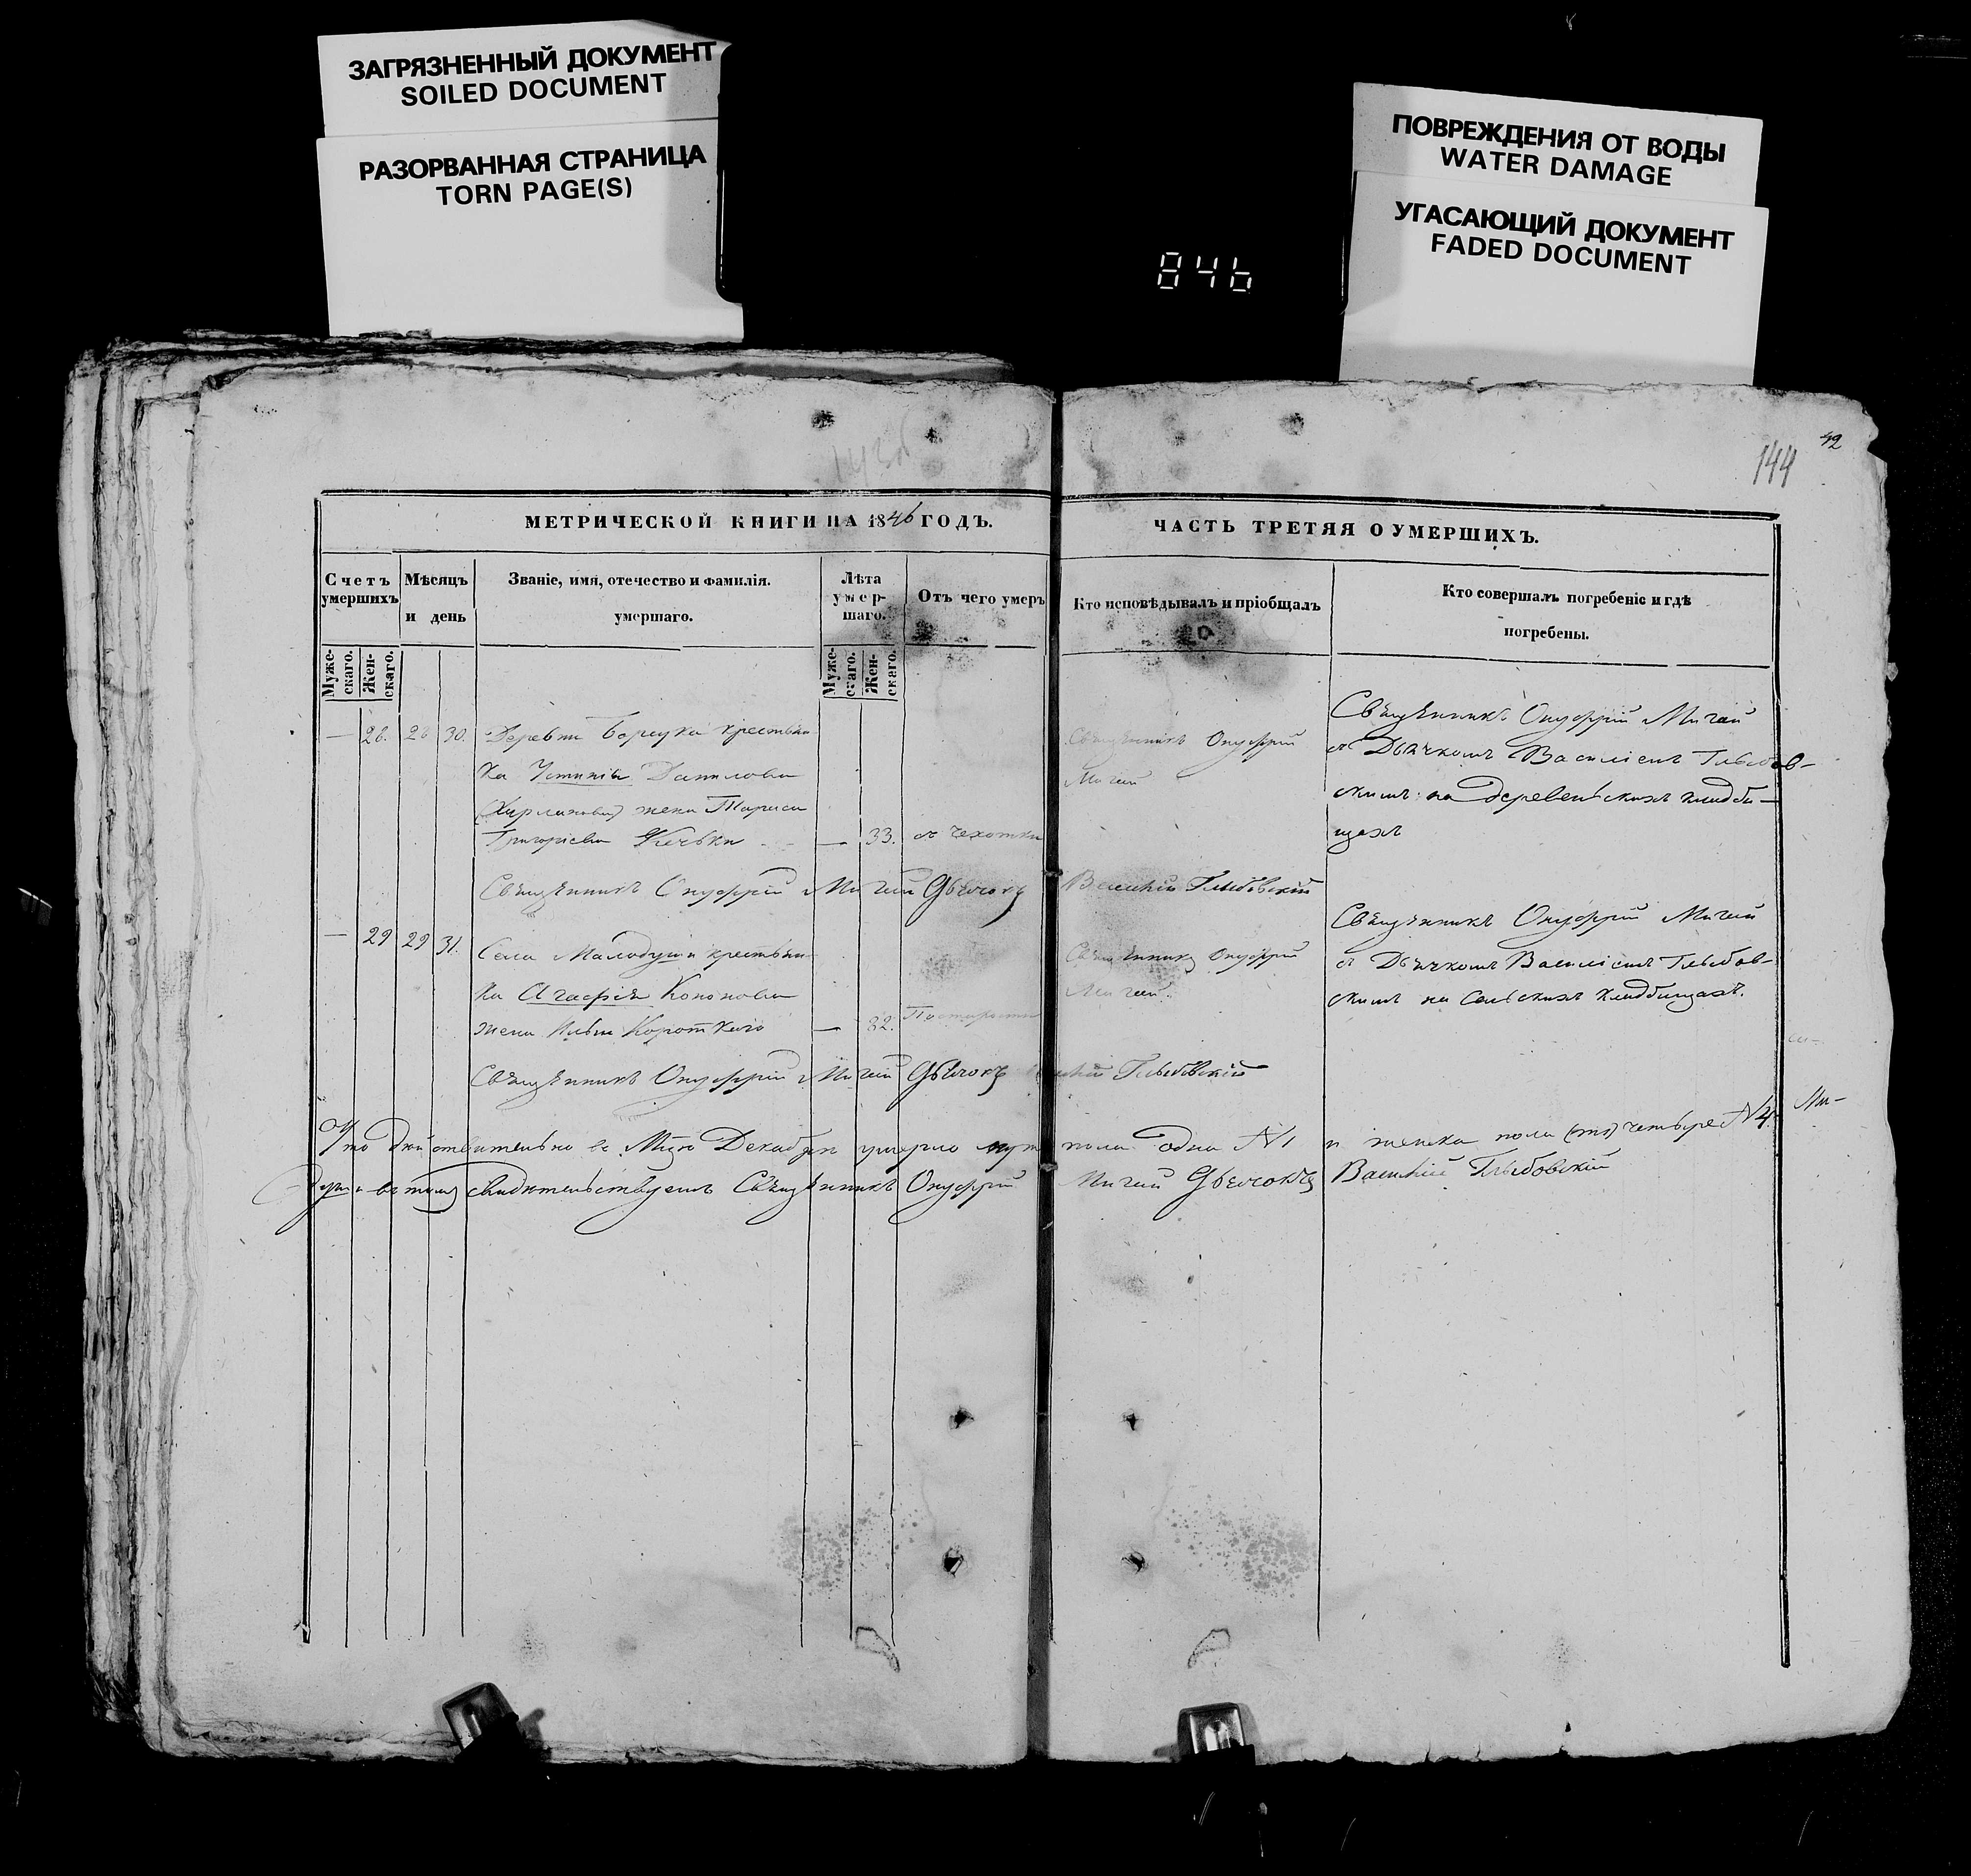 ЗАГРЯЗНЕННЫЙ ДОКУМЕНТ
SOILED DOCUMENT
РАЗОРВАННАЯ СТРАНИЦА
TORN PAGE(S)
ПОВРЕЖДЕНИЯ ОТ ВОДЫ
WATER DAMAGE
УГАСАЮЩИЙ ДОКУМЕНТ
FADED DOCUMENT
846
42
144
МЕТРИЧЕСКОЙ КНИГИ НА 1846 ГОДЪ.
ЧАСТЬ ТРЕТЯЯ О УМЕРШИХЪ.
Счетъ умершихъ
Мѣсяцъ и день
Званіе, имя, отечество и фамилія.
умершаго.
Лѣта
умер-
шаго.
Отъ чего умеръ
Кто исповѣдывалъ и пріобщалъ
Кто совершалъ погребеніе и гдѣ
погребены.
Муже-
скаго.
Жен-
скаго.
Муже-
скаго.
Жен-
скаго.
— 28. 28 30. Деревни Борсука крестьян-
ка Устинія Данилова
жена Тараса
Григоріева — 33. съ чахотки
Священникъ Онуфрій
Мигай
Священникъ Онуфрій Мигай
съ Дьячкомъ Василіемъ Глыбов-
скимъ на деревенскихъ кладби-
щахъ
Священникъ Онуфрій Мигай Дьячокъ Василій Глыбовскій
— 29 29 31. Села Малодуши крестьян-
ка Агафія Кононова
жена Ильи Короткаго — 82. По старости
Священникъ Онуфрій
Мигай.
Священникъ Онуфрій Мигай
съ Дьячкомъ Василіемъ Глыбов-
скимъ на сельскихъ кладбищахъ.
Священникъ Онуфрій Мигай Дьячокъ Василій Глыбовскій
Что дѣйствительно въ Мцѣ Декабрѣ умерло муж пола одна №1 и женска пола четыре №4.
души въ томъ свидѣтельствуемъ Священникъ Онуфрій Мигай Дьячокъ Василій Глыбовскій